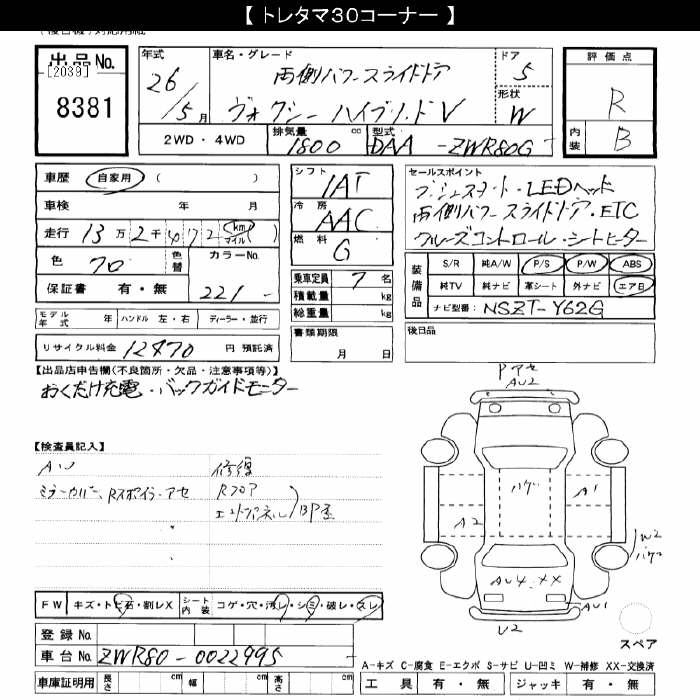 【 トレタマ30コーナー 】
出品No. 8381
[2039]
年式 26/5月
車名・グレード 両側パワースライドドア
ヴォクシー ハイブリッドV
ドア 5
形状 W
評価点 R
内装 B
2WD・4WD
排気量 1800 cc
型式 DAA -ZWR80G-
車歴 自家用 ( )
車検 年 月
走行 13万2千472 (km マイル)
色 70 色替
カラーNo. 221-
保証書 有・無
シフト IAT
冷房 AAC
燃料 G
乗車定員 7名
積載量 kg
総重量 kg
セールスポイント
プッシュスタート・LEDヘッド
両側パワースライドドア・ETC
クルーズコントロール・シートヒーター
装備品 S/R 純A/W P/S P/W ABS
純TV 純ナビ 革シート 外ナビ エアB
ナビ型番: NSZT-Y62G
モデル年式 年 ハンドル 左・右 ディーラー・並行
リサイクル料金 12470 円 預託済
書類期限 月 日
後日品
【出品店申告欄(不良箇所・欠品・注意事項等)】
おくだけ充電・バックガイドモニター
【検査員記入】
修復
ミラーカバー、Rスポイラーアセ
Rフロア
エンドパネル
Fアセ
AU2
ハゲ
A1
A2
W2
ハゲ
AU4、XX
AU1
U2
FW キズ・トビ石・割レX
シート内装 コゲ・穴・汚レ・シミ・破レ・スレ
登録No.
車台No. ZWR80-0022995
車庫証明用 長さ cm 幅 cm 高さ cm
スペア
A-キズ C-腐食 E-エクボ S-サビ U-凹ミ W-補修 XX-交換済
工具 有・無 ジャッキ 有・無